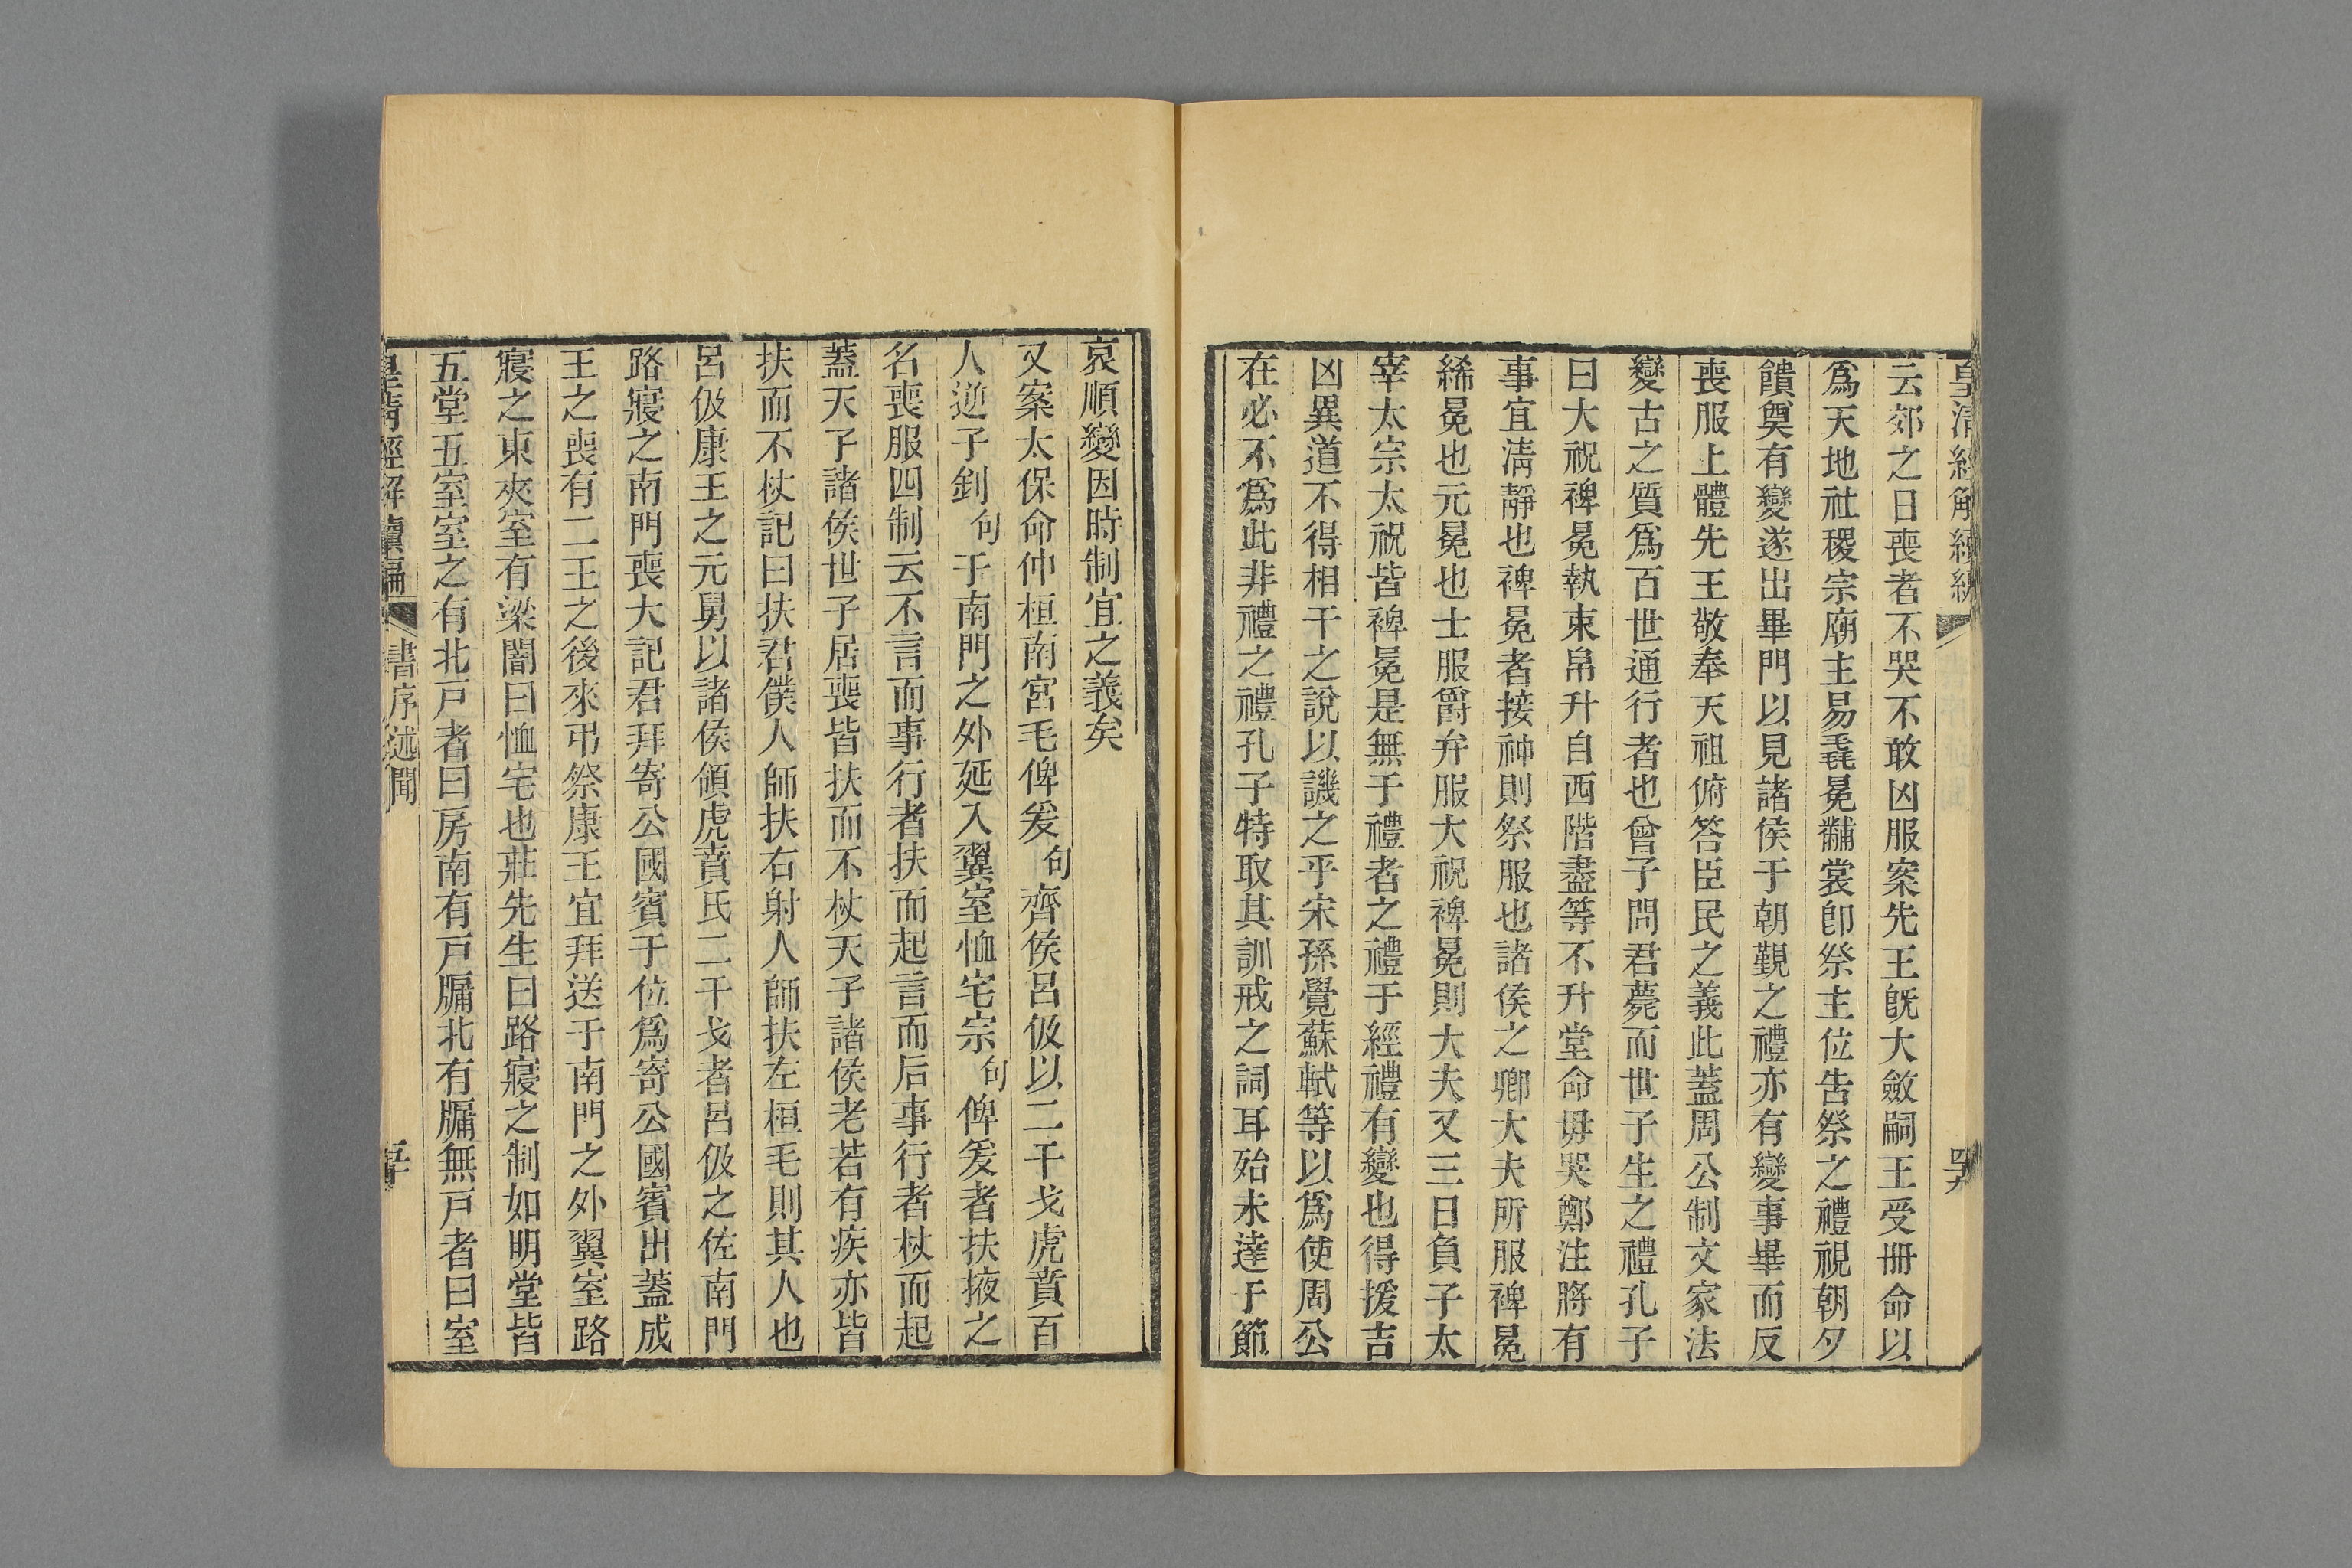 皇清經解續編
四九
云郊之日喪者不哭不敢凶服案先王旣大斂嗣王受冊命以
爲天地社稷宗廟主易毳冕黼裳卽祭主位告祭之禮視朝夕
饋奠有變遂出畢門以見諸侯于朝覲之禮亦有變事畢而反
喪服上體先王敬奉天祖俯答臣民之義此蓋周公制文家法
變古之質爲百世通行者也曾子問君薨而世子生之禮孔子
曰大祝裨冕執束帛升自西階盡等不升堂命毋哭鄭注將有
事宜淸靜也裨冕者接神則祭服也諸侯之卿大夫所服裨冕
絺冕也元冕也士服爵弁服大祝裨冕則大夫又三日負子太
宰太宗太祝皆裨冕是無于禮者之禮于經禮有變也得援吉
凶異道不得相干之說以譏之乎宋孫覺蘇軾等以爲使周公
在必不爲此非禮之禮孔子特取其訓戒之詞耳殆未達于節
哀順變因時制宜之義矣
又案太保命仲桓南宮毛俾爰句齊侯呂伋以二干戈虎賁百
人逆子釗句于南門之外延入翼室恤宅宗句俾爰者扶掖之
名喪服四制云不言而事行者扶而起言而后事行者杖而起
蓋天子諸侯世子居喪皆扶而不杖天子諸侯老若有疾亦皆
扶而不杖記曰扶君僕人師扶右射人師扶左桓毛則其人也
呂伋康王之元舅以諸侯領虎賁氏二干戈者呂伋之佐南門
路寢之南門喪大記君拜寄公國賓于位爲寄公國賓出蓋成
王之喪有二王之後來弔祭康王宜拜送于南門之外翼室路
寢之東夾室有梁闇曰恤宅也莊先生曰路寢之制如明堂皆
五堂五室室之有北戸者曰房南有戸牖北有牖無戸者曰室
皇清經解續編
書序述聞
五十